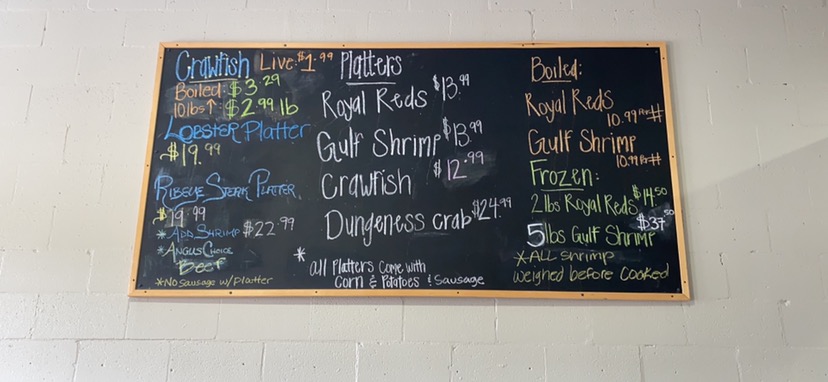 Crawfish Live: $1.99
Boiled: $3.29
10lbs↑: $2.99 lb
LOBSTER Platter
$19.99
RIBEYE STEAK PLATTER
$19.99
* ADD SHRIMP $22.99
* ANGUS CHOICE
BEEF
*NO sausage w/ platter
Platters
Royal Reds $13.99
Gulf Shrimp $13.99
Crawfish $12.99
Dungeness crab $24.99
* all Platters come with
corn & Potatoes & Sausage
Boiled:
Royal Reds
10.99 Per #
Gulf Shrimp
10.99 Per #
Frozen:
2lbs Royal Reds $14.50
5lbs Gulf Shrimp $37.50
*ALL shrimp
weighed before cooked